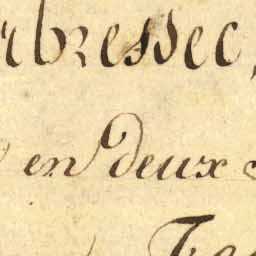 rbressec,
en deux
Te